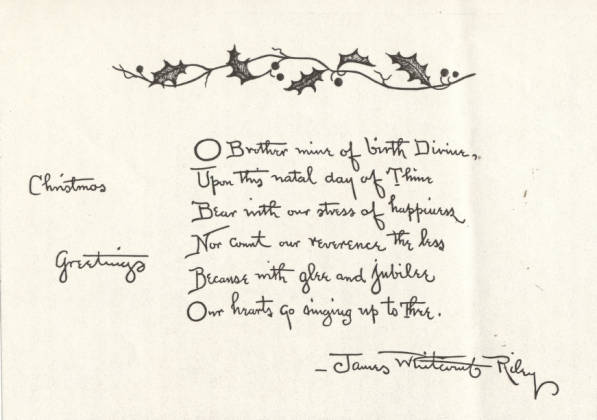 Christmas
Greetings
O Brother mine of birth Divine,
Upon this natal day of Thine
Bear with our stress of happiness
Nor count our reverence the less
Because with glee and jubilee
Our hearts go singing up to Thee.
- James Whitcomb Riley